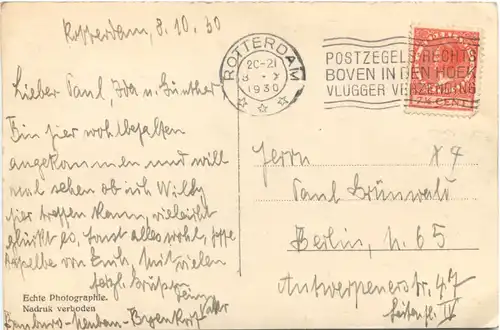 Rotterdam, 8.10.30
Lieber Paul, Ida u. Günther
Bin hier wohlbehalten
angekommen und will
mal sehen ob ich Willy
hier treffen kann, vielleicht
glückt es, sonst alles wohl, hoffe
dasselbe von Euch. Mit vielen
herzl. Grüßen
Echte Photographie.
Nadruk verboden
ROTTERDAM
20-21
8 X
1930
POSTZEGELS RECHTS
BOVEN IN DEN HOEK
VLUGGER VERZENDING
7½ CENT
Herrn
Paul Grünwald
Berlin, N. 65
Antwerpenerstr. 47
Seitenfl. IV